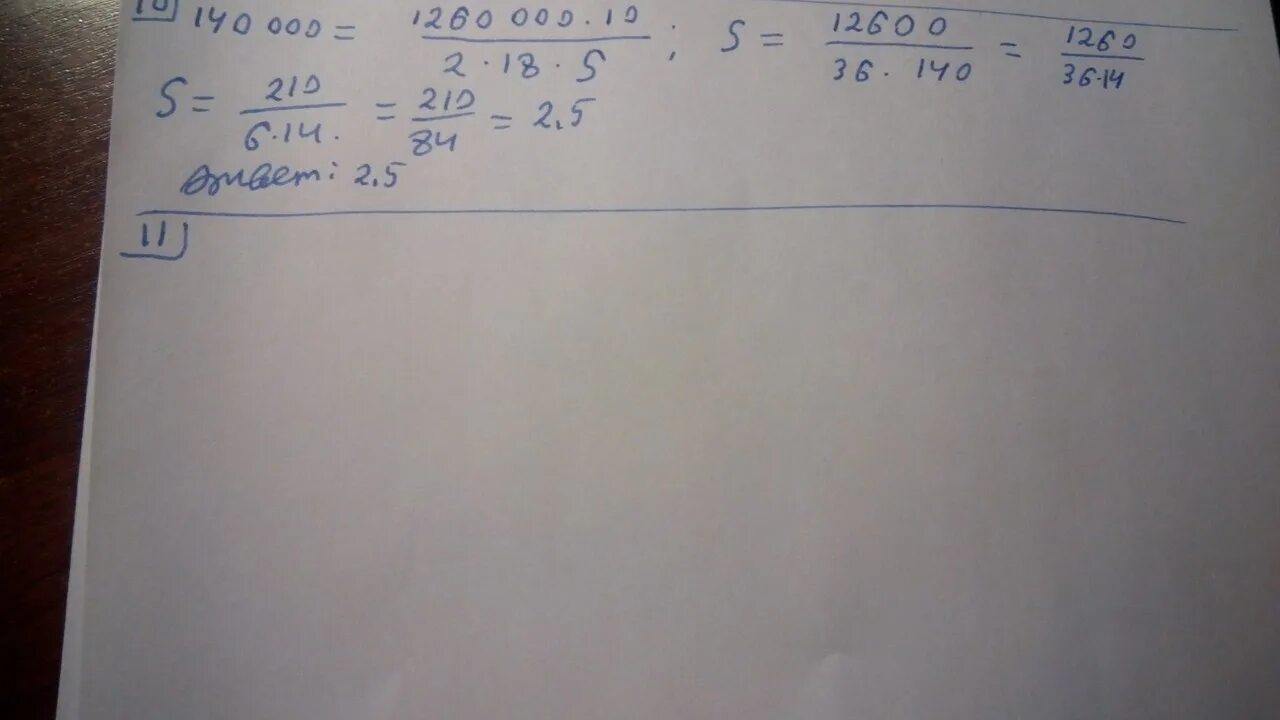 10 140 000 = 1260 000 · 10 / 2 · 18 · S ; S = 12600 / 36 · 140 = 1260 / 36·14
S = 210 / 6·14. = 210 / 84 = 2,5
Ответ: 2,5
11